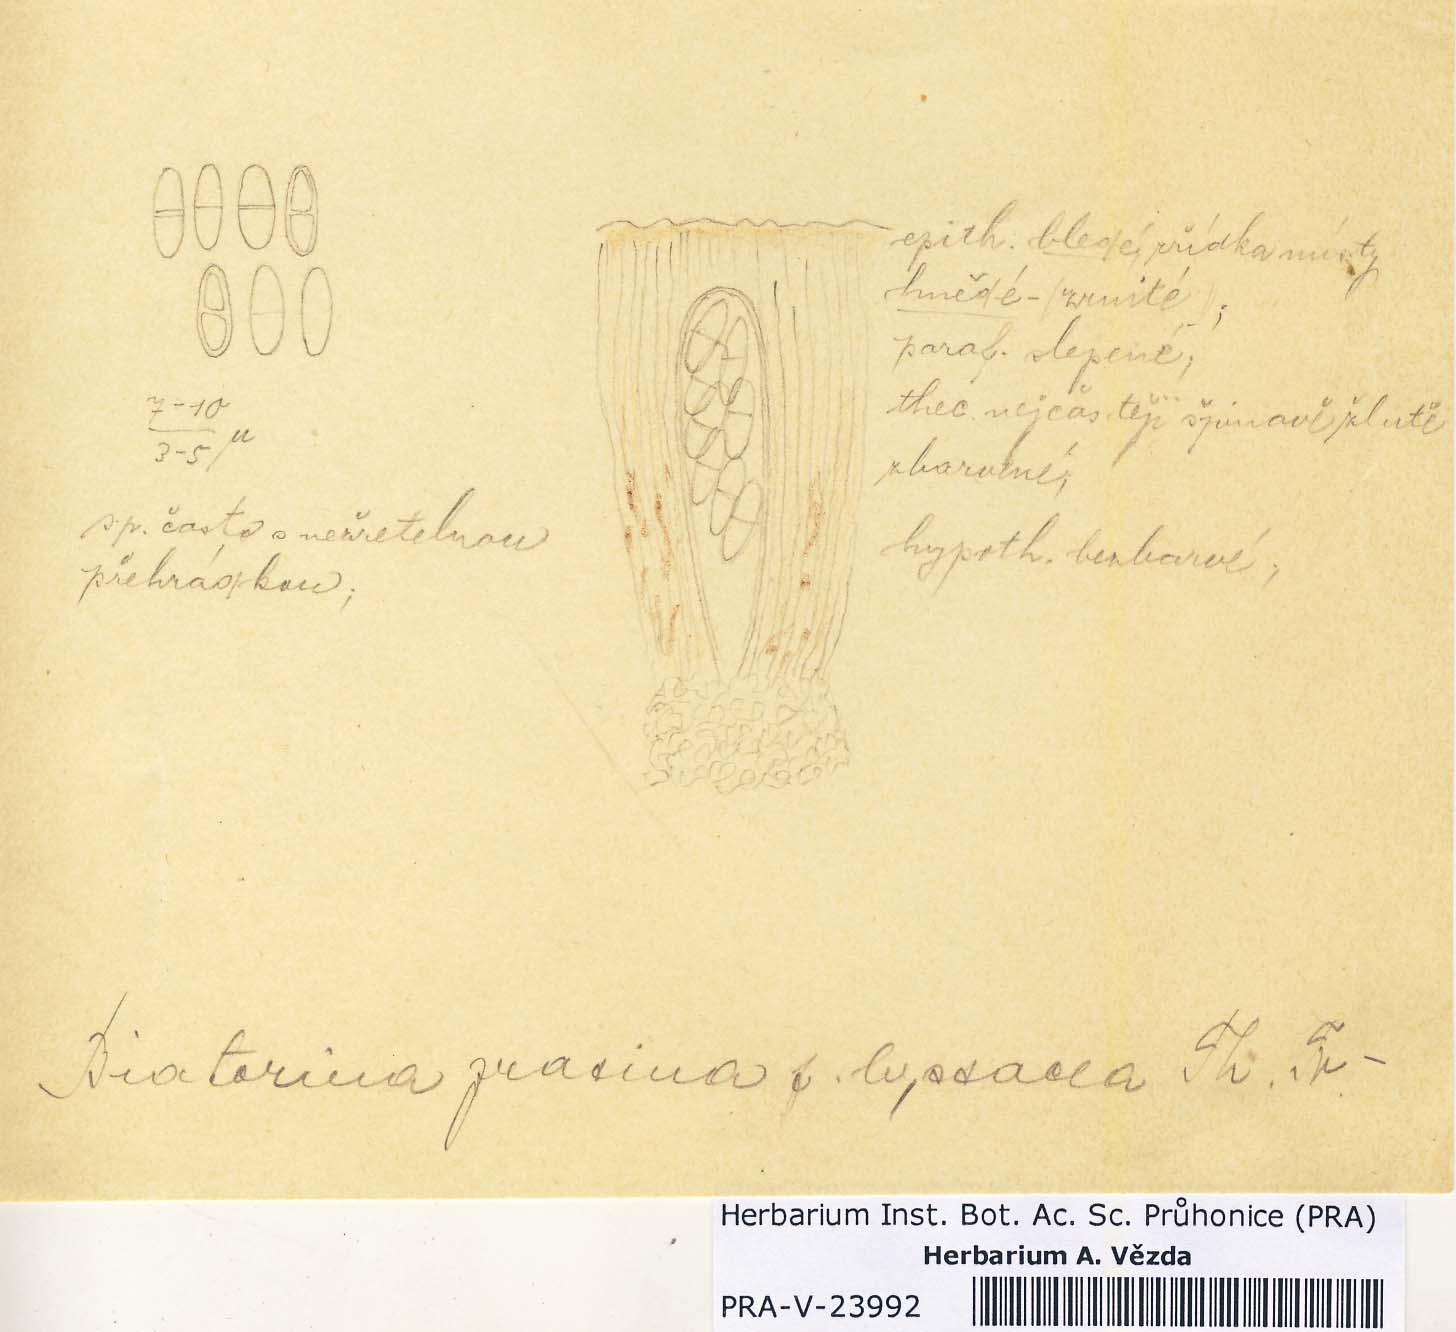 epith. bledé, zřídka místy
hnědé - (zrnité);
paraf. slepené;
thec. nejčastěji špinavě žlutě
zbarvené;
hypoth. bezbarvé;
7-10
3-5 μ
sp. často s nezřetelnou
přehrádkou;
Biatorina prasina f. byssacea Th. Fr.
Herbarium Inst. Bot. Ac. Sc. Průhonice (PRA)
Herbarium A. Vězda
PRA-V-23992